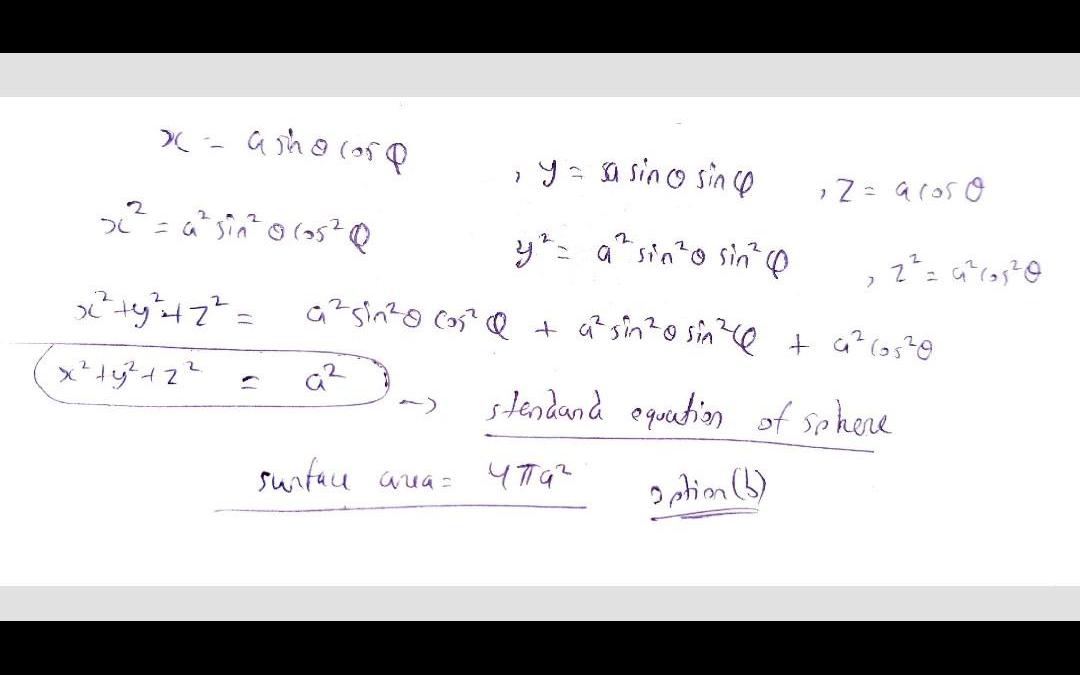 x = a sin θ cos φ , y = a sin θ sin φ , z = a cos θ
x² = a² sin² θ cos² φ y² = a² sin² θ sin² φ , z² = a² cos² θ
x² + y² + z² = a² sin² θ cos² φ + a² sin² θ sin² φ + a² cos² θ
x² + y² + z² = a² → standard equation of sphere
surface area = 4πa² option (b)